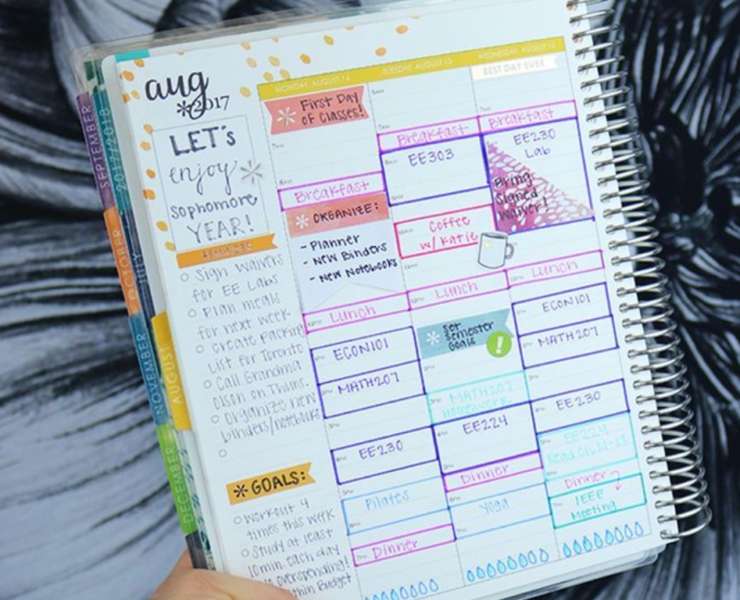 aug
*2017
LET'S
enjoy
sophomore
YEAR!
Sign Waivers
for EE Labs
Plan meals
for next week
Create Packing
List for Toronto
Call Grandma
Olson on Thurs.
Organize new
binders/notebooks
* GOALS:
Workout 4
times this week
Study at least
10min each day
overspending!
within Budget
MONDAY AUGUST 14
First Day
of Classes!
Breakfast
* ORGANIZE:
- Planner
- New Binders
- New Notebooks
Lunch
ECON101
MATH207
EE230
Pilates
Dinner
TUESDAY AUGUST 15
Breakfast
EE303
Coffee
w/ Katie
Lunch
* Set
Semester
Goals
!
MATH207
Homework
EE224
Dinner
Yoga
WEDNESDAY AUGUST 16
BEST DAY EVER
Breakfast
EE230
Lab
Bring
Signed
Waiver!
Lunch
ECON101
MATH207
EE230
EE224
Read
Dinner
IEEE
Meeting
SEPTEMBER
2017/2018
OCTOBER
JULY
NOVEMBER
AUGUST
DECEMBER